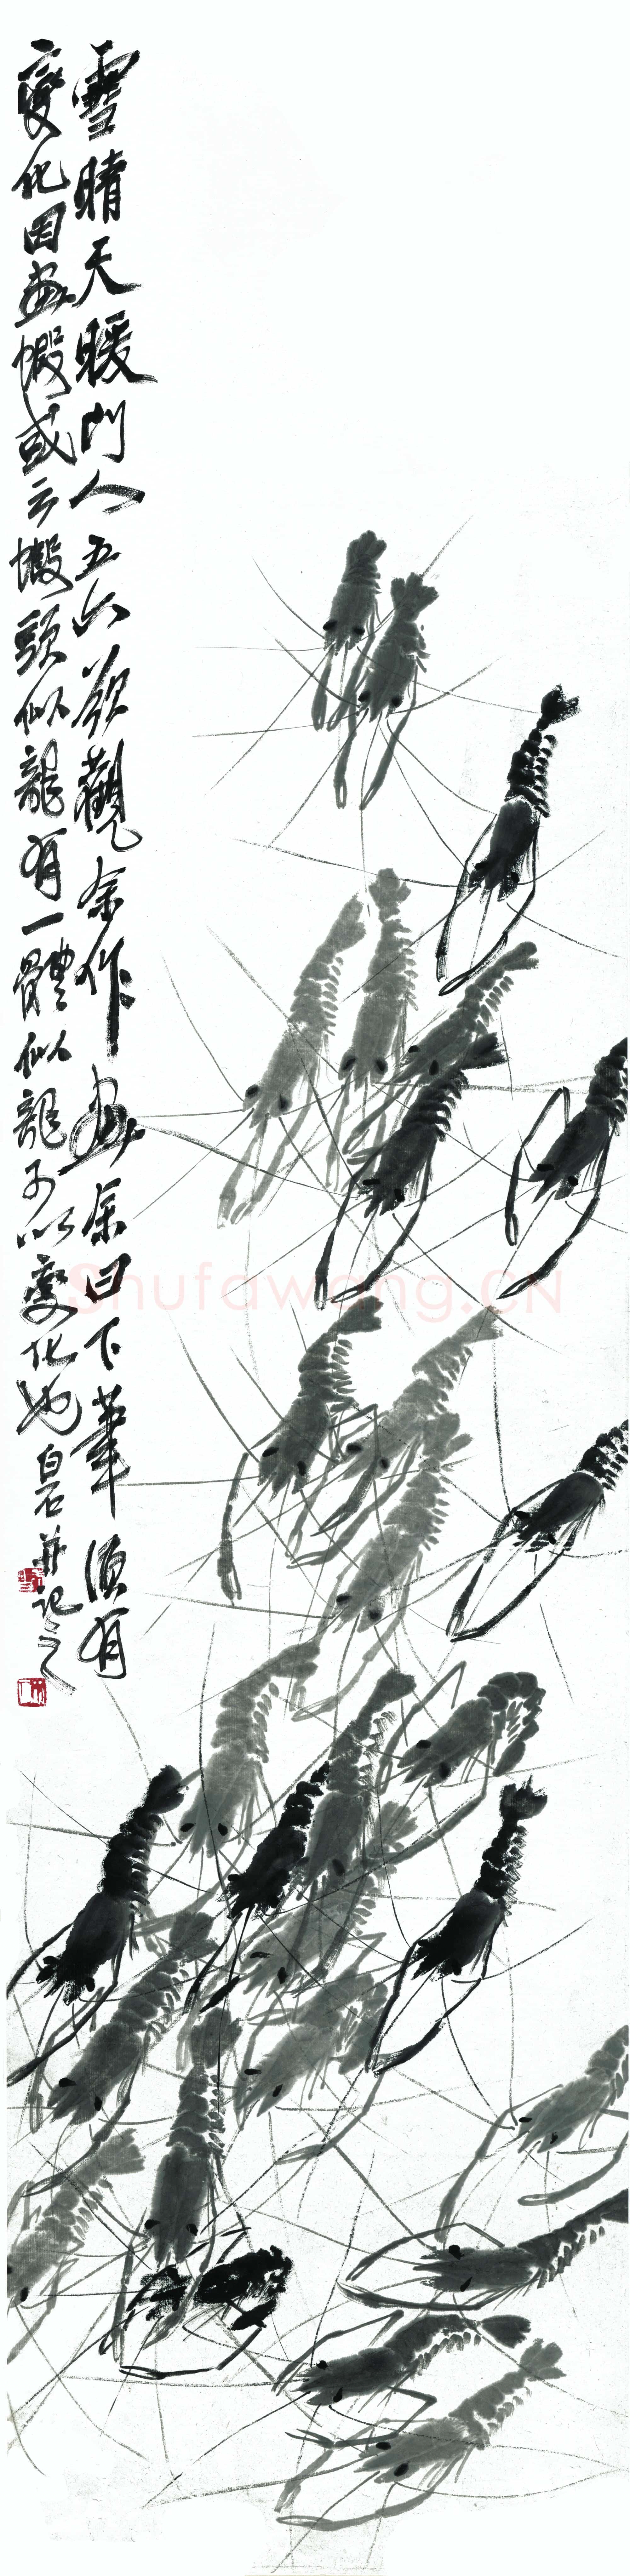 雪晴天暖門人五六欲觀余作畫余曰下筆須有
變化因畫蝦或云蝦頭似龍有一體似龍予以變化也
白石并記之
Shufawang.CN